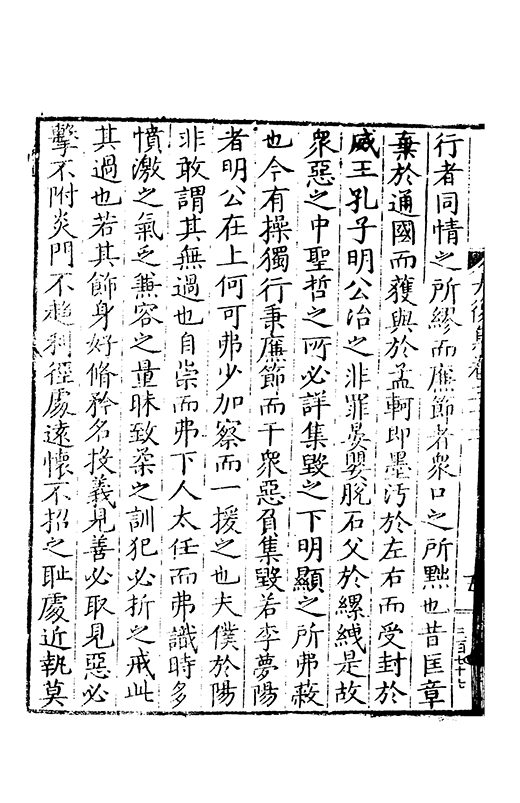 行者同情之所繆而廉節者衆口之所點也昔匡章
棄於通國而獲與於孟軻即墨汚於左右而受封於
威王孔子明公冶之非罪晏嬰脫石父於縲絏是故
衆惡之中聖哲之所必詳集毀之下明顯之所弗蔽
也今有操獨行秉廉節而干衆惡負集毀若李夢陽
者明公在上何可弗少加察而一援之也夫僕於陽
非敢謂其無過也自崇而弗下人太任而弗識時多
憤激之氣乏兼容之量昧致柔之訓犯必折之戒此
其過也若其飾身好脩矜名投義見善必取見惡必
擊不附炎門不趨利徑處遠懷不招之耻處近執莫
三百七十七